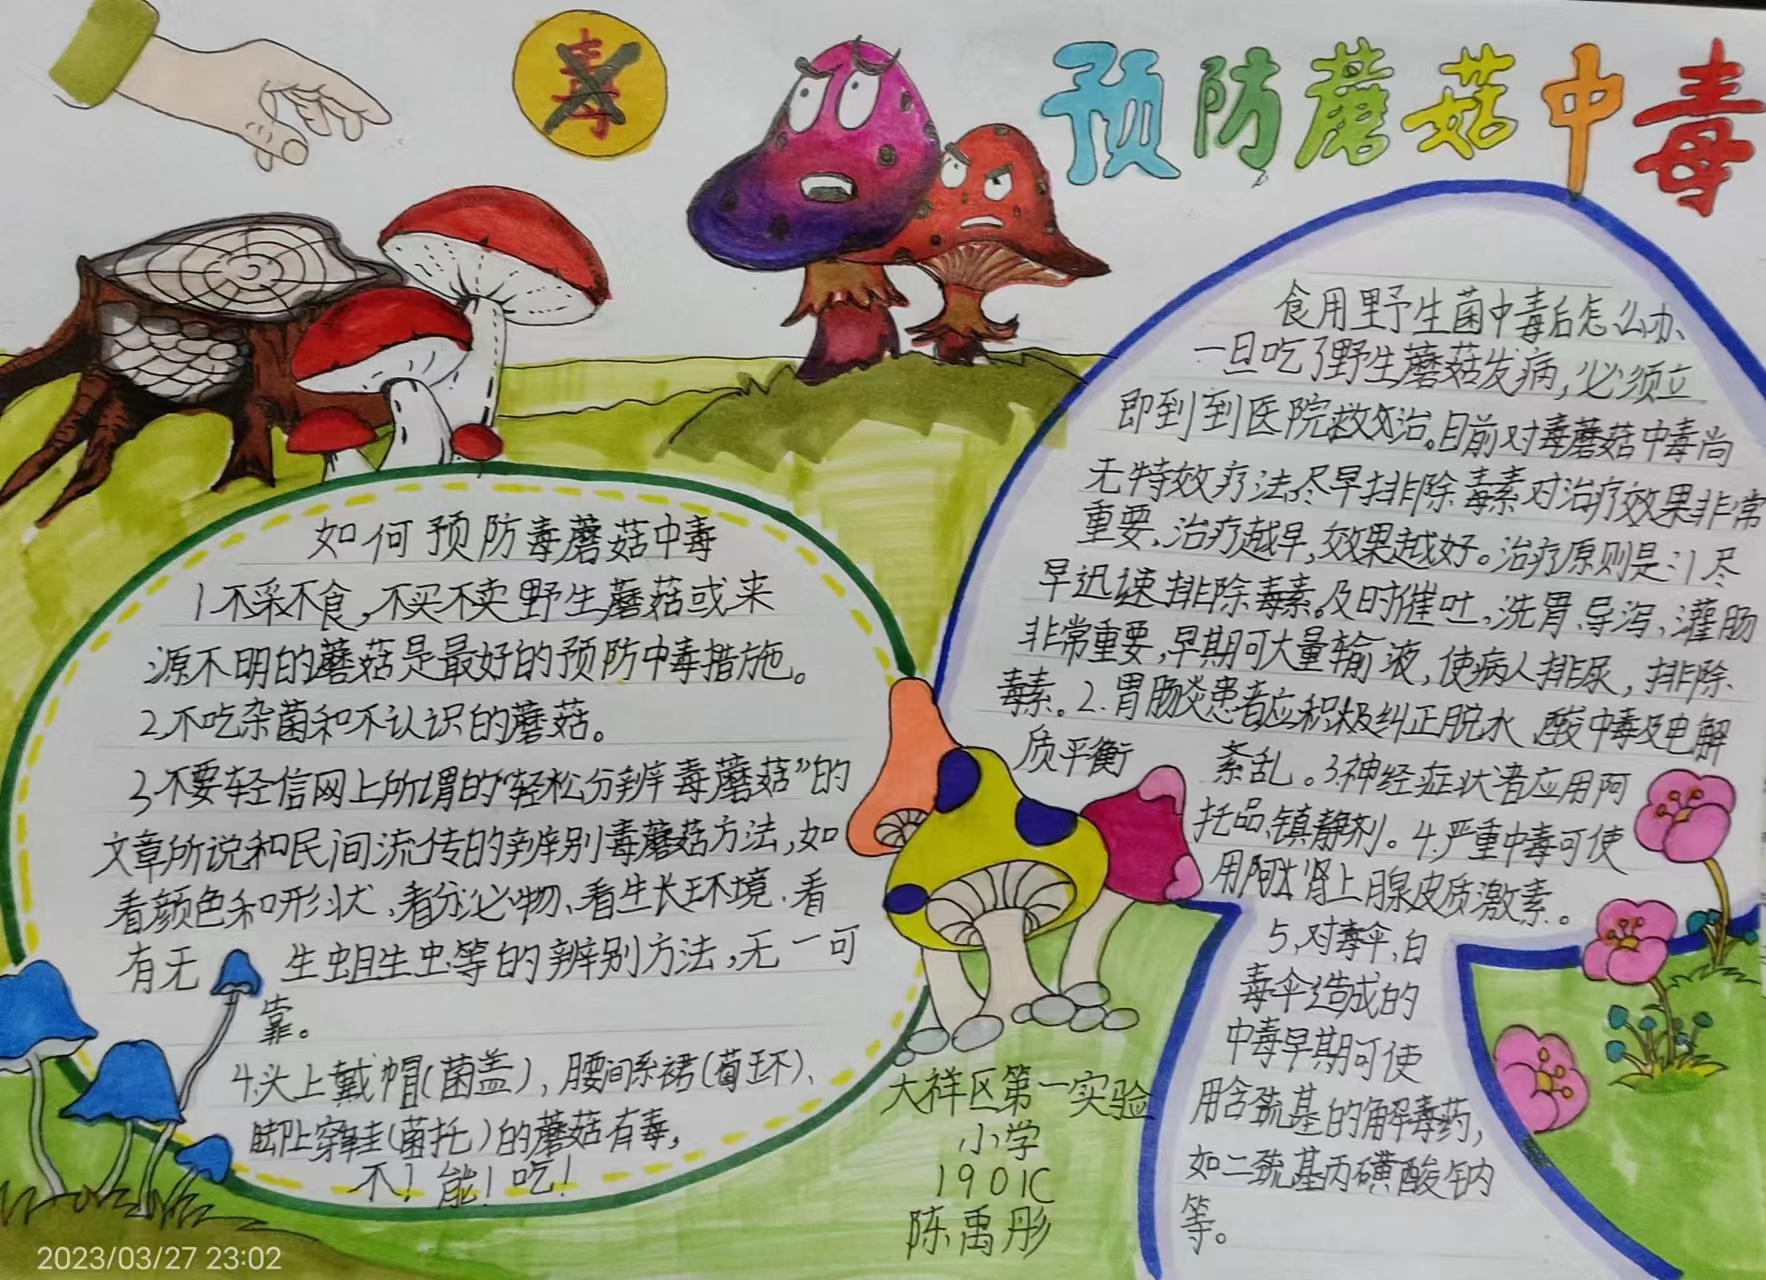 毒
预防蘑菇中毒
如何预防毒蘑菇中毒
1不采不食,不买不卖野生蘑菇或来
源不明的蘑菇是最好的预防中毒措施。
2.不吃杂菌和不认识的蘑菇。
3不要轻信网上所谓的“轻松分辨毒蘑菇”的
文章所说和民间流传的辨别毒蘑菇方法,如
看颜色和形状、看分泌物、看生长环境.看
有无 生蛆生虫等的辨别方法,无一可
靠。
4.头上戴帽(菌盖)、腰间系裙(菌环)、
脚上穿鞋(菌托)的蘑菇有毒,
不!能!吃!
食用野生菌中毒后怎么办
一旦吃了野生蘑菇发病,必须立
即到到医院救治。目前对毒蘑菇中毒尚
无特效疗法,尽早排除毒素对治疗效果非常
重要、治疗越早,效果越好。治疗原则是:1尽
早迅速排除毒素。及时催吐、洗胃、导泻、灌肠
非常重要,早期可大量输液,使病人排尿,排除
毒素。2.胃肠炎患者应积极纠正脱水、酸中毒及电解
质平衡 紊乱。3.神经症状者应用阿
托品、镇静剂。4.严重中毒可使
用肾上腺皮质激素。
5、对毒伞、白
毒伞造成的
中毒早期可使
用含巯基的解毒药,
如二巯基丙磺酸钠
等。
大祥区第一实验
小学
1901C
陈禹彤
2023/03/27 23:02